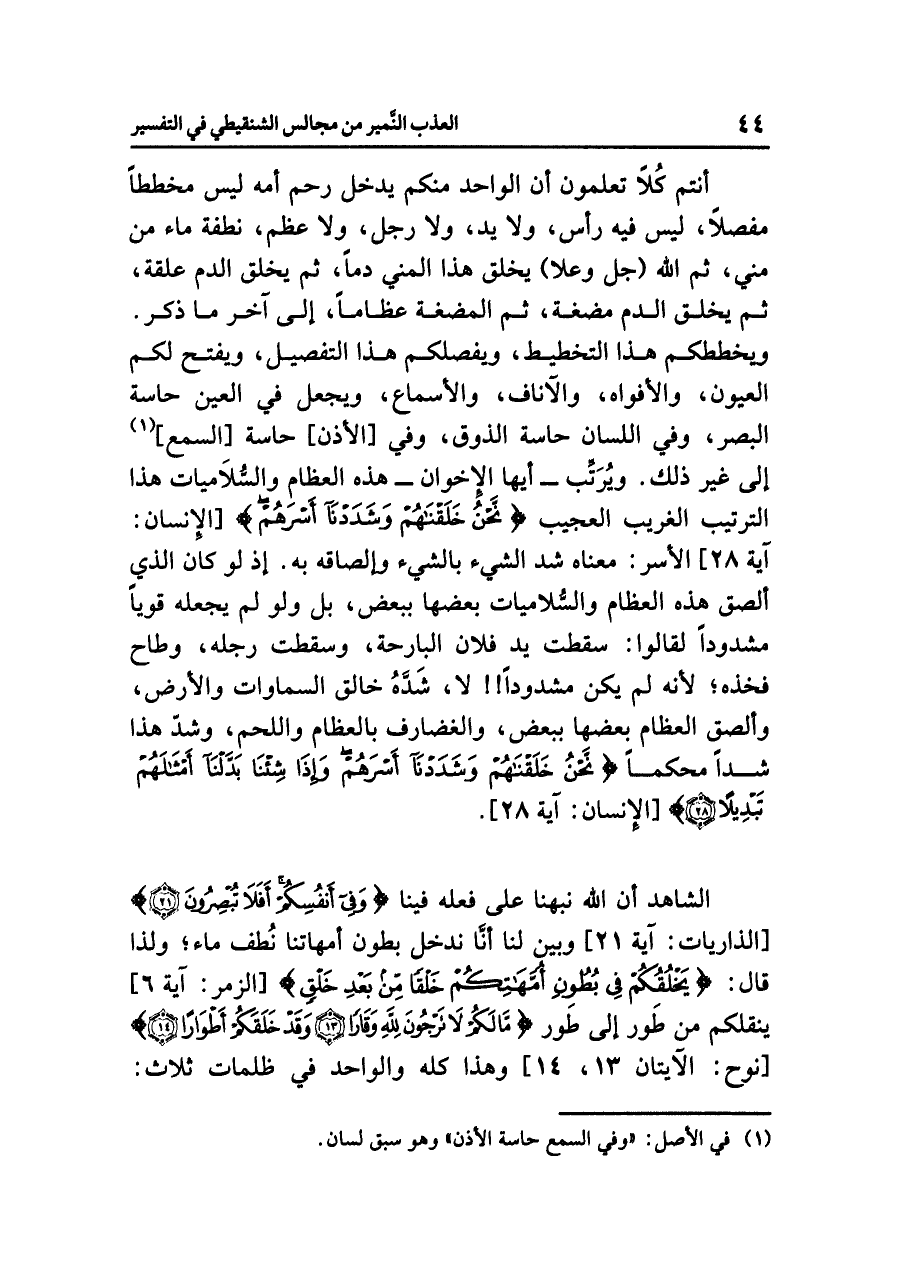 ٤٤ العذب النَّمير من مجالس الشنقيطي في التفسير
أنتم كُلاً تعلمون أن الواحد منكم يدخل رحم أمه ليس مخططاً
مفصلاً، ليس فيه رأس، ولا يد، ولا رجل، ولا عظم، نطفة ماء من
مني، ثم الله (جل وعلا) يخلق هذا المني دماً، ثم يخلق الدم علقة،
ثم يخلق الدم مضغة، ثم المضغة عظاماً، إلى آخر ما ذكر.
ويخططكم هذا التخطيط، ويفصلكم هذا التفصيل، ويفتح لكم
العيون، والأفواه، والآناف، والأسماع، ويجعل في العين حاسة
البصر، وفي اللسان حاسة الذوق، وفي [الأذن] حاسة [السمع](١)
إلى غير ذلك. ويُرَتِّب ـ أيها الإخوان ـ هذه العظام والسُّلاَميات هذا
الترتيب الغريب العجيب ﴿نَّحْنُ خَلَقْنَٰهُمْ وَشَدَدْنَآ أَسْرَهُمْۖ﴾ [الإنسان:
آية ٢٨] الأسر: معناه شد الشيء بالشيء وإلصاقه به. إذ لو كان الذي
ألصق هذه العظام والسُّلاميات بعضها ببعض، بل ولو لم يجعله قوياً
مشدوداً لقالوا: سقطت يد فلان البارحة، وسقطت رجله، وطاح
فخذه؛ لأنه لم يكن مشدوداً!! لا، شَدَّهُ خالق السماوات والأرض،
وألصق العظام بعضها ببعض، والغضارف بالعظام واللحم، وشدّ هذا
شداً محكماً ﴿نَّحْنُ خَلَقْنَٰهُمْ وَشَدَدْنَآ أَسْرَهُمْۖ وَإِذَا شِئْنَا بَدَّلْنَآ أَمْثَٰلَهُمْ
تَبْدِيلًا ۝٢٨﴾ [الإنسان: آية ٢٨].
الشاهد أن الله نبهنا على فعله فينا ﴿وَفِىٓ أَنفُسِكُمْۚ أَفَلَا تُبْصِرُونَ ۝٢١﴾
[الذاريات: آية ٢١] وبين لنا أنَّا ندخل بطون أمهاتنا نُطف ماء؛ ولذا
قال: ﴿يَخْلُقُكُمْ فِى بُطُونِ أُمَّهَٰتِكُمْ خَلْقًا مِّنۢ بَعْدِ خَلْقٍ﴾ [الزمر: آية ٦]
ينقلكم من طَور إلى طَور ﴿مَّا لَكُمْ لَا تَرْجُونَ لِلَّهِ وَقَارًا ۝١٣ وَقَدْ خَلَقَكُمْ أَطْوَارًا ۝١٤﴾
[نوح: الآيتان ١٣، ١٤] وهذا كله والواحد في ظلمات ثلاث:
(١) في الأصل: «وفي السمع حاسة الأذن» وهو سبق لسان.